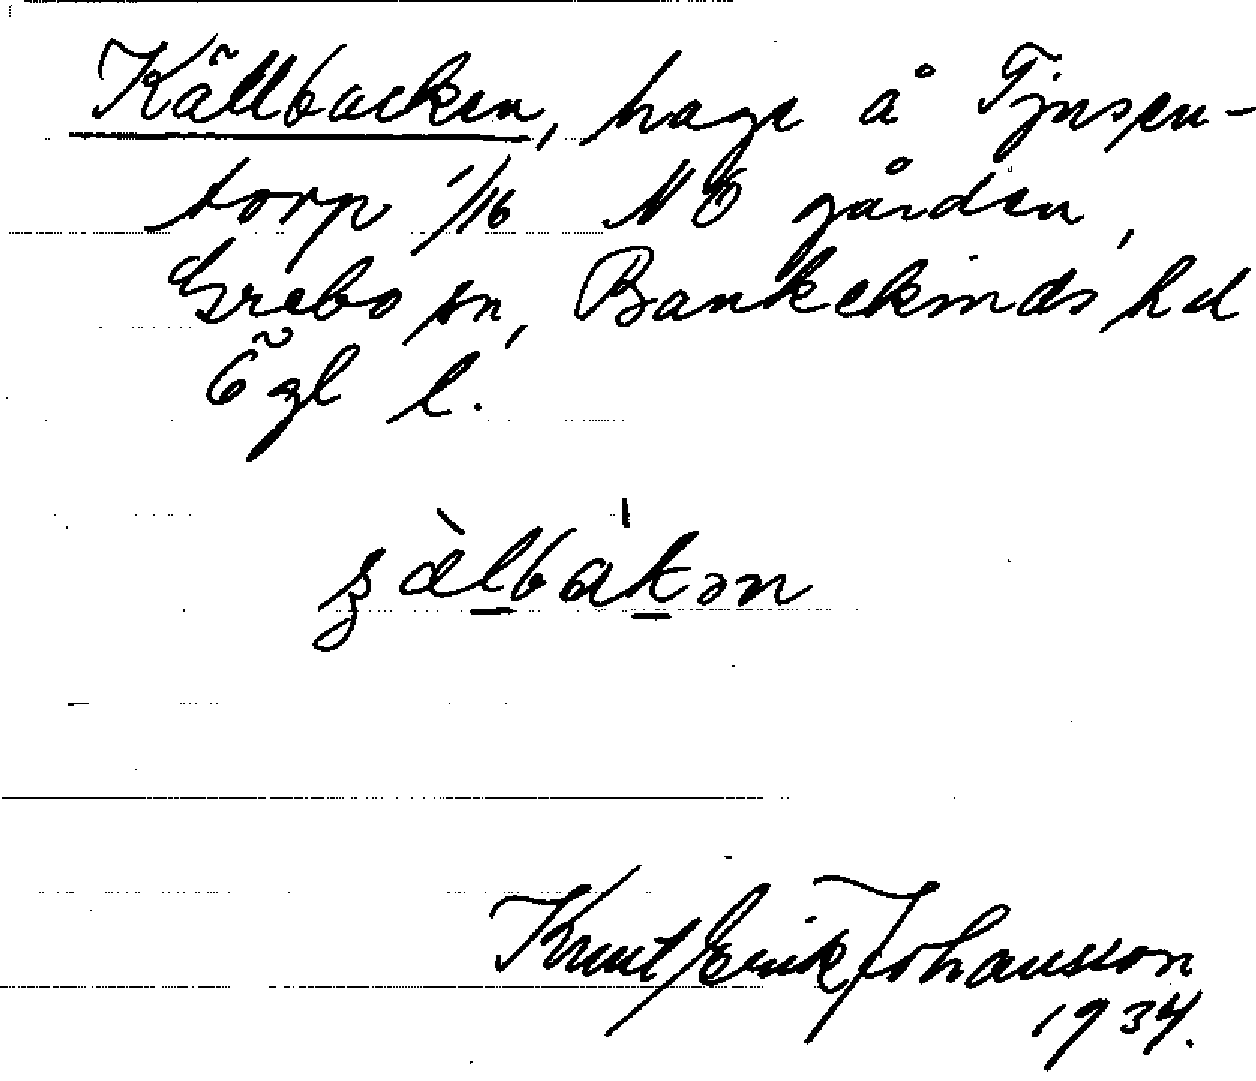 Källbacken, hage å Tjusen-
torp 1/16 NÖ gården,
Grebo sn, Bankekinds hd
Ögl l.
Knut Erik Johansson
1934.